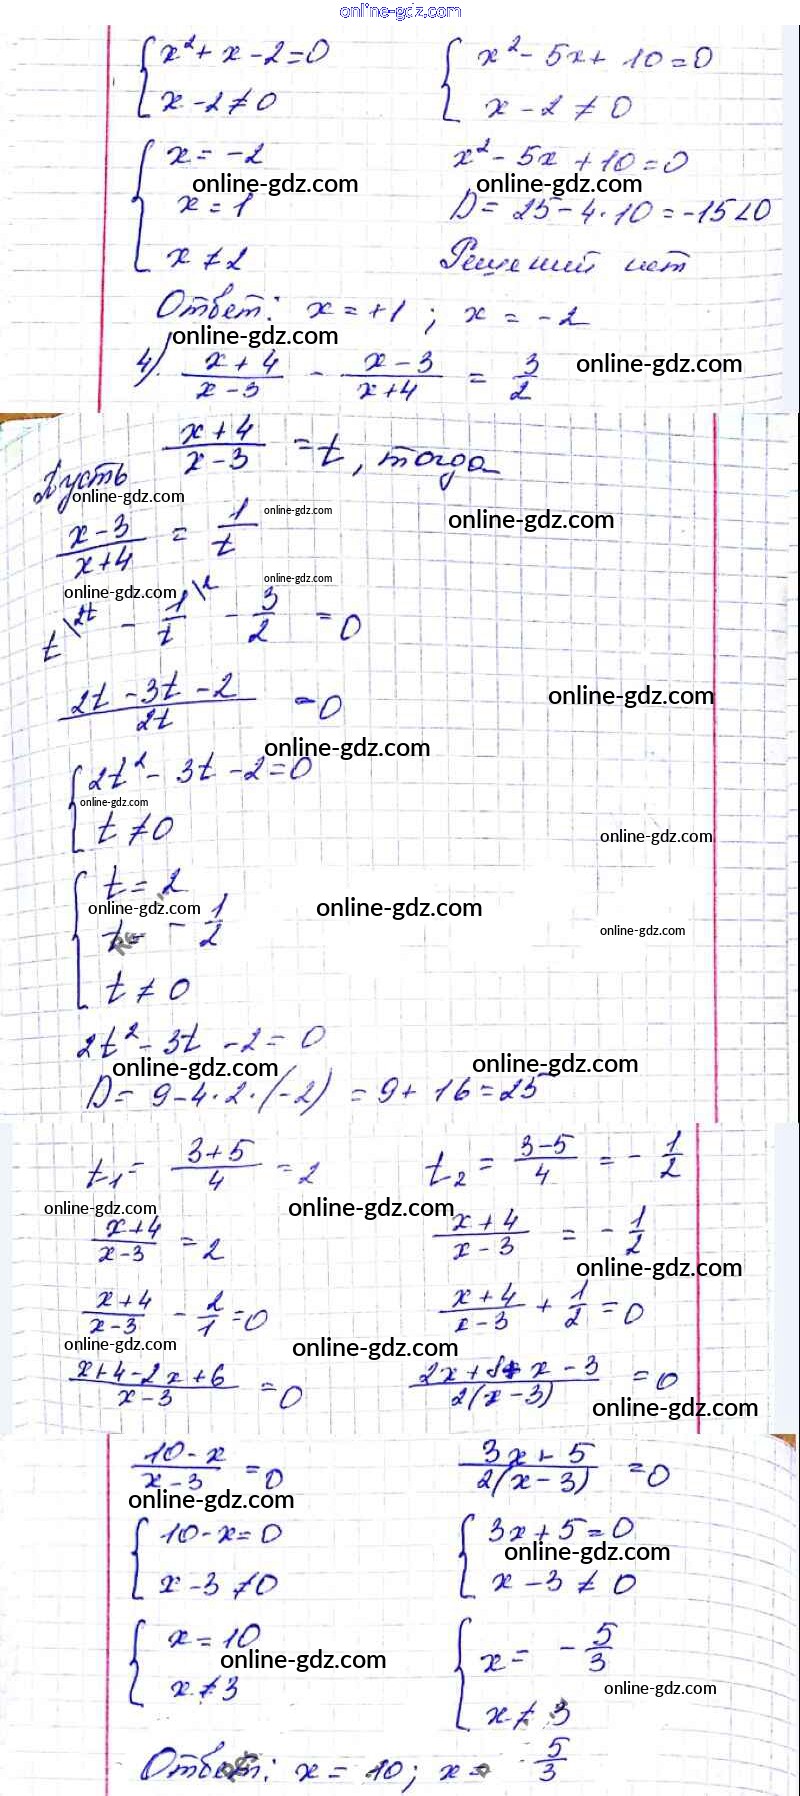 online-gdz.com
{ x² + x - 2 = 0    { x² - 5x + 10 = 0
{ x - 2 ≠ 0    { x - 2 ≠ 0
{ x = -2    x² - 5x + 10 = 0
online-gdz.com    online-gdz.com
x = 1    D = 25 - 4·10 = -15 < 0
x ≠ 2    Решений нет
Ответ: x = +1 ; x = -2
online-gdz.com
4). (x + 4)/(x - 3) - (x - 3)/(x + 4) = 3/2    online-gdz.com
Пусть (x + 4)/(x - 3) = t, тогда
online-gdz.com
(x - 3)/(x + 4) = 1/t    online-gdz.com    online-gdz.com
online-gdz.com    online-gdz.com
t \2t - 1/t \2 - 3/2 = 0
(2t - 3t - 2)/2t = 0    online-gdz.com
online-gdz.com
{ 2t² - 3t - 2 = 0
online-gdz.com
{ t ≠ 0    online-gdz.com
{ t = 2
online-gdz.com    online-gdz.com
t = - 1/2    online-gdz.com
t ≠ 0
2t² - 3t - 2 = 0
online-gdz.com    online-gdz.com
D = 9 - 4·2·(-2) = 9 + 16 = 25
t₁ = (3 + 5)/4 = 2    t₂ = (3 - 5)/4 = - 1/2
online-gdz.com    online-gdz.com
(x + 4)/(x - 3) = 2    (x + 4)/(x - 3) = - 1/2
online-gdz.com
(x + 4)/(x - 3) - 2/1 = 0    (x + 4)/(x - 3) + 1/2 = 0
online-gdz.com    online-gdz.com
(x + 4 - 2x + 6)/(x - 3) = 0    (2x + 8 + x - 3)/2(x - 3) = 0
online-gdz.com
(10 - x)/(x - 3) = 0    (3x + 5)/2(x - 3) = 0
online-gdz.com
{ 10 - x = 0    { 3x + 5 = 0
online-gdz.com
{ x - 3 ≠ 0    { x - 3 ≠ 0
{ x = 10    { x = - 5/3
online-gdz.com
{ x ≠ 3    online-gdz.com
{ x ≠ 3
Ответ: x = 10; x = - 5/3